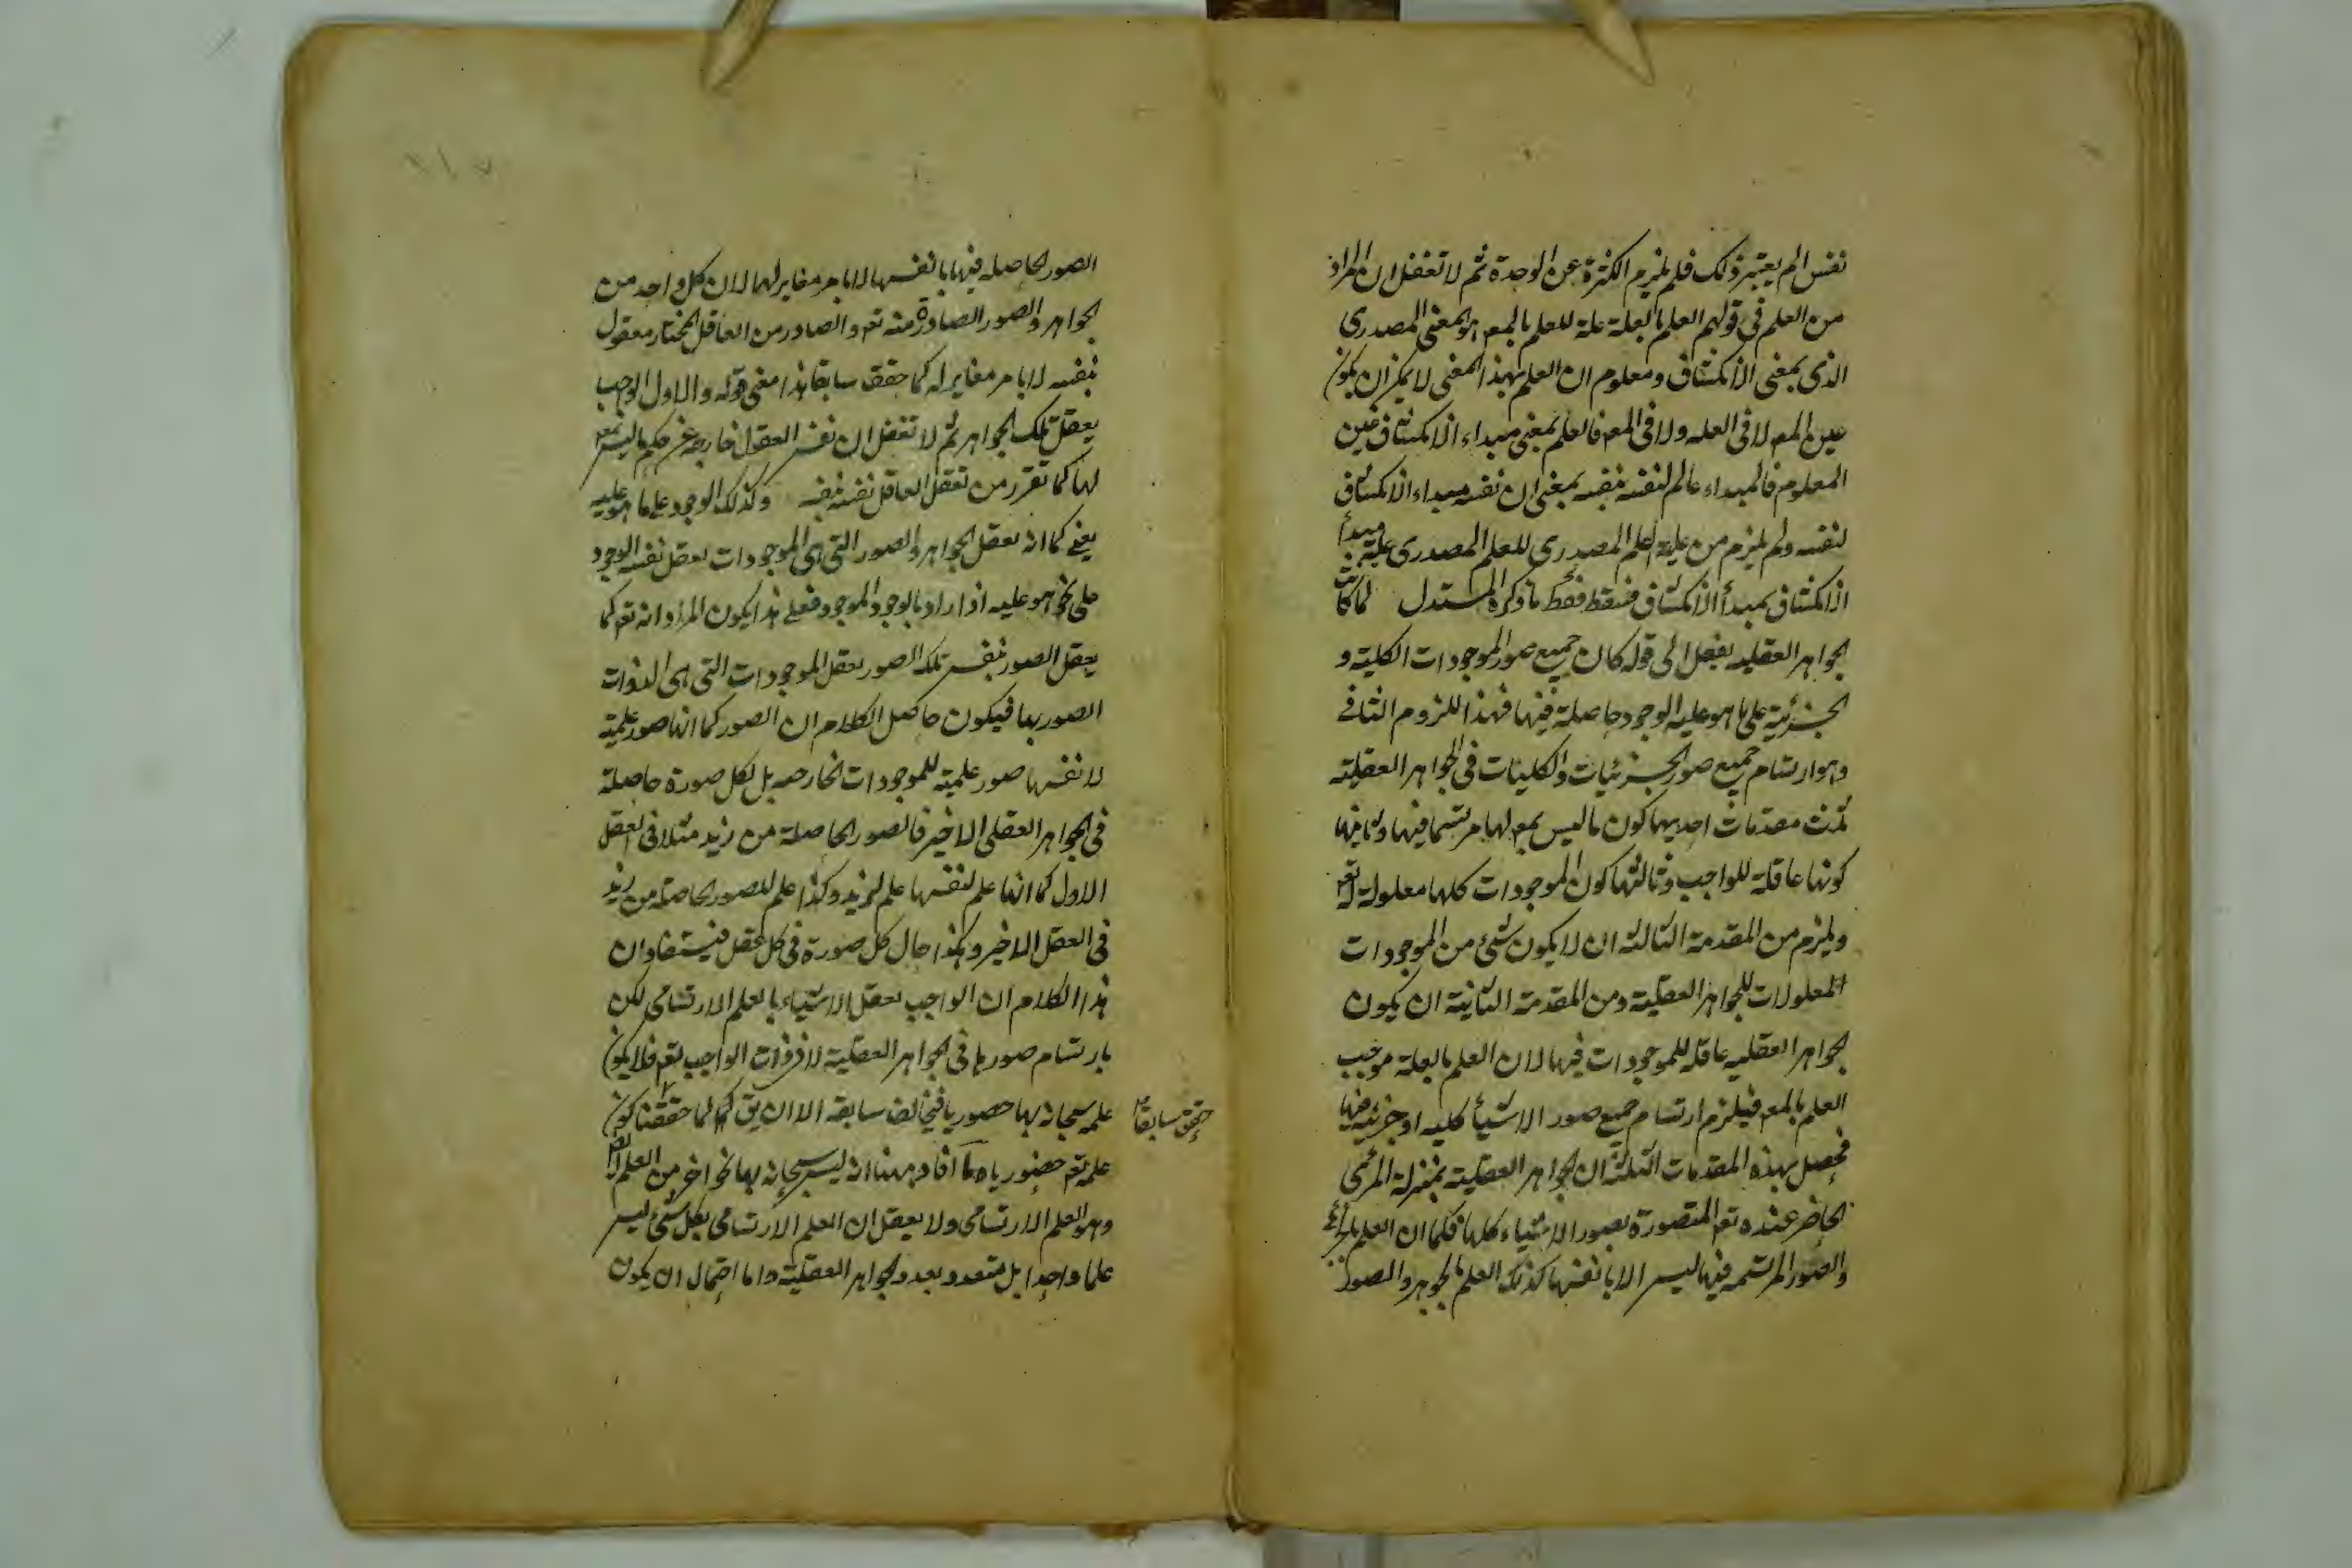 نفس الم يعتبر ذلك فلم يلزم الكثرة عن الوحدة ثم لا تغفل ان المراد
من العلم في قولهم العلم بالعلة علة للعلم بالمعم هو المعنى المصدرى
الذى بمعنى الانكشاف ومعلوم ان العلم بهذا المعنى لا يمكن ان يكون
عين المعم لا فى العلة ولا فى المعم فالعلم بمعنى مبداء الانكشاف عين
المعلوم فالمبداء عالم لنفسه بنفسه بمعنى ان نفسه مبداء الانكشاف
لنفسه ولم يلزم من علية العلم المصدرى للعلم المصدرى علية مبدأ
الانكشاف بمبدأ الانكشاف فسقط ما ذكره المستدل لما كانت
الجواهر العقلية بفعل الى قوله كان جميع صور الموجودات الكلية و
الجزئية على ما هو عليه الوجود حاصلة فيها فهذا اللزوم الثانى
وهو ارتسام جميع صور الجزئيات والكليات فى الجواهر العقلية
ثلث مقدمات احديها كون ما ليس بمعم لها مرتسما فيها وثانيها
كونها عاقلة للواجب وثالثها كون الموجودات كلها معلولة له تعم
ويلزم من المقدمة الثالثة ان لا يكون شئ من الموجودات
المعلولات للجواهر العقلية ومن المقدمة الثانية ان يكون
الجواهر العقلية عاقلة للموجودات فيها لان العلم بالعلة موجب
العلم بالمعم فيلزم ارتسام جميع صور الاشيأ كلية او جزئية فيها
فحصل بهذه المقدمات الثلثة ان الجواهر العقلية بمنزلة المرئى
الحاضر عنده تعم المتصورة بصور الاشياء كلها فكما ان العلم بالمرائى
والصور المرتسمه فيها ليس الا بانفسها كذلك العلم بالجوهر والصور
الصور الحاصله فيها بانفسها لا بامر مغاير لها لان كل واحد من
الجواهر والصور الصادرة منه تعم والصادر من العاقل المختار معقول
بنفسه لا بامر مغاير له كما حقق سابقا هذا معنى قوله والاول الواجب
يعقل تلك الجواهر ثم لا تغفل ان نفس العقول خارجة عن حكم ما ليس بمعم
لها كما تقرر من تعقل العاقل نفسه بنفسه وكذلك الوجود على ما هو عليه
يعنى كما انه يعقل الجواهر والصور التى هى الموجودات يعقل نفس الوجود
على نحو هو عليه اذا اراد بالوجود الموجود فعلى هذا يكون المراد انه تعم كما
يعقل الصور بنفس تلك الصور يعقل الموجودات التى هى لذوات
الصور بها فيكون حاصل الكلام ان الصور كما انها صور علمية
لانفسها صور علمية للموجودات الخارجه بل لكل صورة حاصلة
فى الجواهر العقلى الاخير فالصور الحاصلة من زيد مثلا فى العقل
الاول كما انها علم لنفسها علم لزيد وكذا علم للصور الحاصلة من زيد
فى العقل الاخير وهكذا حال كل صورة فى كل عقل فيستفاد ان
هذا الكلام ان الواجب يعقل الاشياء بالعلم الارتسامى لكن
بارتسام صورها فى الجواهر العقلية لا فى ذات الواجب تعم فلا يكون
علمه سبحانه بها حضوريا فيخالف سابقه الا ان يق كما لما حققنا كون
حقق سابقا
علمه تعم حضوريا افاد ههنا انه ليس سبحانه بها نحو اخر من العلم
وهو العلم الارتسامى ولا يعقل ان العلم الارتسامى بكل شئ ليس
علما واحدا بل متعدد بعدد الجواهر العقلية واما احتمال ان يكون